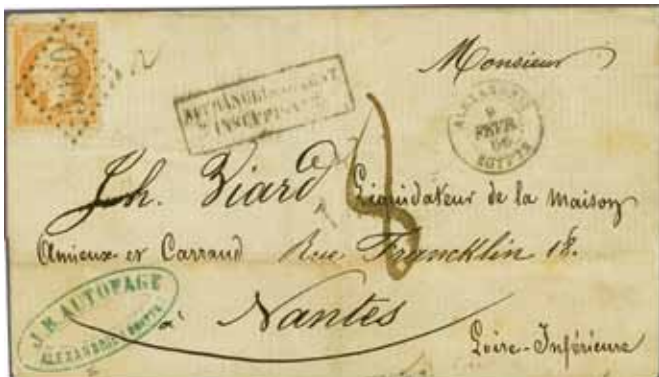 5080
Monsieur
AFFRANCHISSEMENT
INSUFFISANT
ALEXANDRIE
8
FEVR.
66
EGYPTE
8
Jh. Viard Liquidateur de la maison
Amieux et Carraud Rue Francklin 18.
à Nantes
Loire-Inférieure
AUTOFAGE
ALEXANDRIE EGYPTE